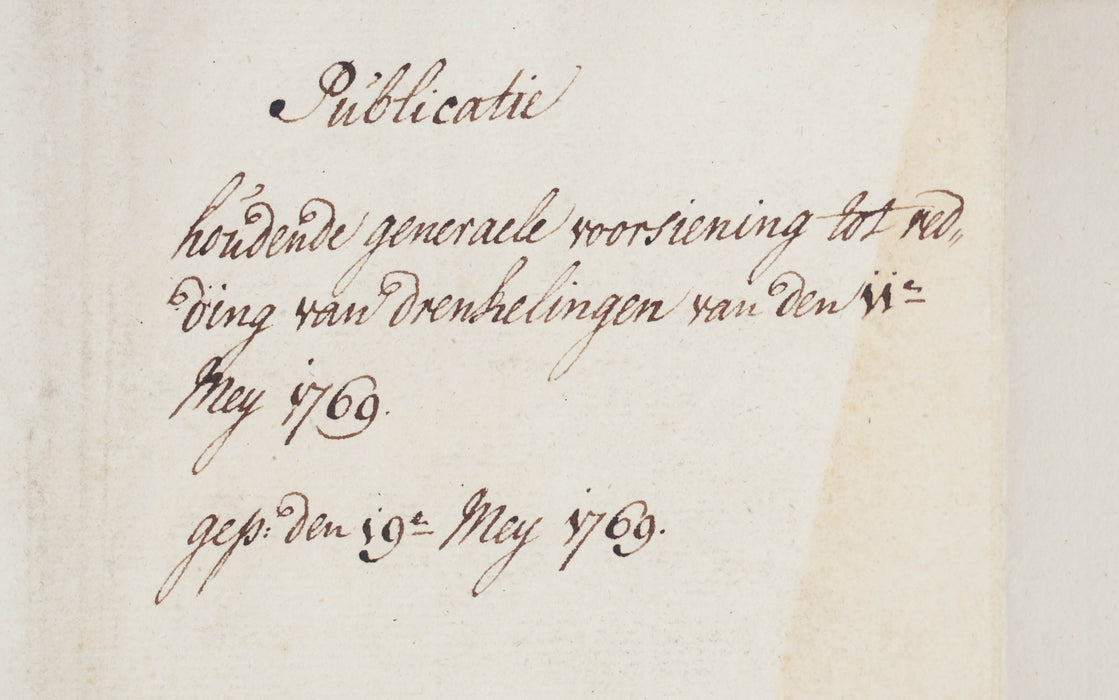 Publicatie
houdende generaele voorsiening tot red„
ding van drenkelingen van den 11e
Mey 1769.
gep: den 19e Mey 1769.